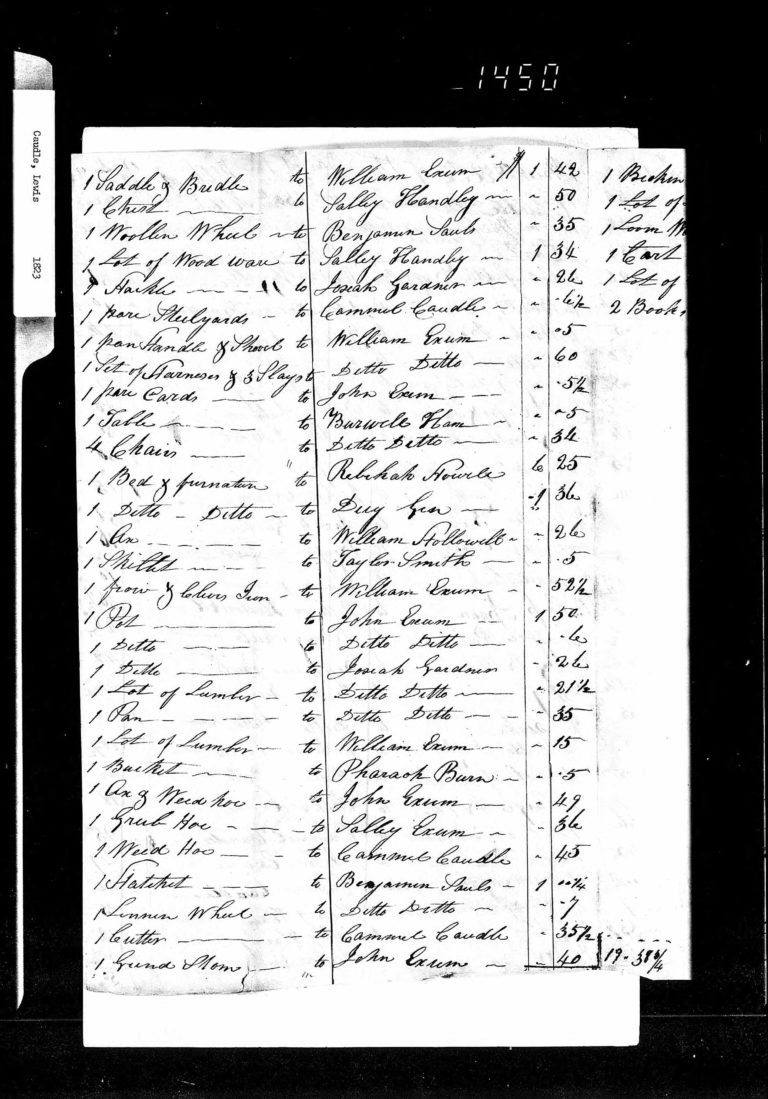 1450
Caudle, Lewis 1823
1 Saddle & Bridle to William Exum 1 42
1 Chest to Salley Handley " 50
1 Woollin Wheel to Benjamin Sauls " 35
1 Lot of Wood ware to Salley Handley 1 34
1 Hackle " to Josiah Gardner " 26
1 pare Steelyards to Cammel Caudle " 6½
1 pan Handle & Shovel to William Exum " 05
1 Set of Harneses & 3 Slays to Ditto Ditto " 60
1 pare Cards to John Exum " 5½
1 Table to Burwell Ham " 5
4 Chairs to Ditto Ditto " 34
1 Bed & furnature to Rebekah Howell 6 25
1 Ditto Ditto to 1 36
1 Ax to William Hollowell " 26
1 Skillet to Taylor Smith " 5
1 frow & Clevis Iron to William Exum 52½
1 Pot to John Exum 1 50
1 Ditto to Ditto Ditto " 6
1 Ditto to Josiah Gardner " 26
1 Lot of Lumber to Ditto Ditto " 21½
1 Pan to Ditto Ditto " 35
1 Lot of Lumber to William Exum " 15
1 Bucket to Pharaoh Burn " 5
1 Ax & Weed hoe to John Exum " 49
1 Grub Hoe to Salley Exum " 36
1 Weed Hoe to Cammel Caudle " 45
1 Hatchet to Benjamin Sauls 1
1 Linnen Wheel to Ditto Ditto " 7
1 Cutter to Cammel Caudle " 35½
1 Grind Stone to John Exum " 40 19
1
1 Lot of
1 Loom
1 Cart
1 Lot of
2 Books